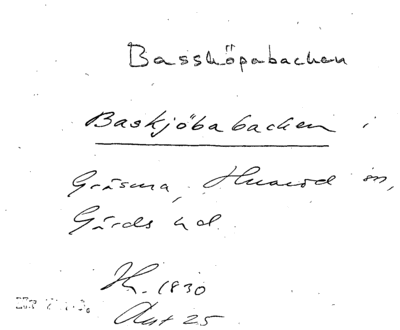 Basskjöpabacken
Baskjöbabacken i
Gräsma, Huaröd sn,
Gärds hd
H. 1830
Ant 25